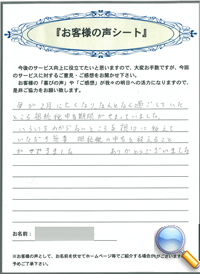 『お客様の声シート』
今後のサービス向上に役立てたいと思いますので、大変お手数ですが、今回
のサービスに対するご意見・ご感想をお聞かせ下さい。
お客様の「喜びの声」や「ご感想」が我々の明日への活力になりますので、
是非ご協力をお願い致します。
母が2月に亡くなり なんとなく過ごしていた
ところ相続税申告期限がせまっていました。
いろいろわからないところを
いただき無事 相続税の申告を終えること
ができました ありがとうございました
お名前：
※お客様の声として、お名前を伏せてホームページ等でご紹介する場合がございます
予めご了承下さい。